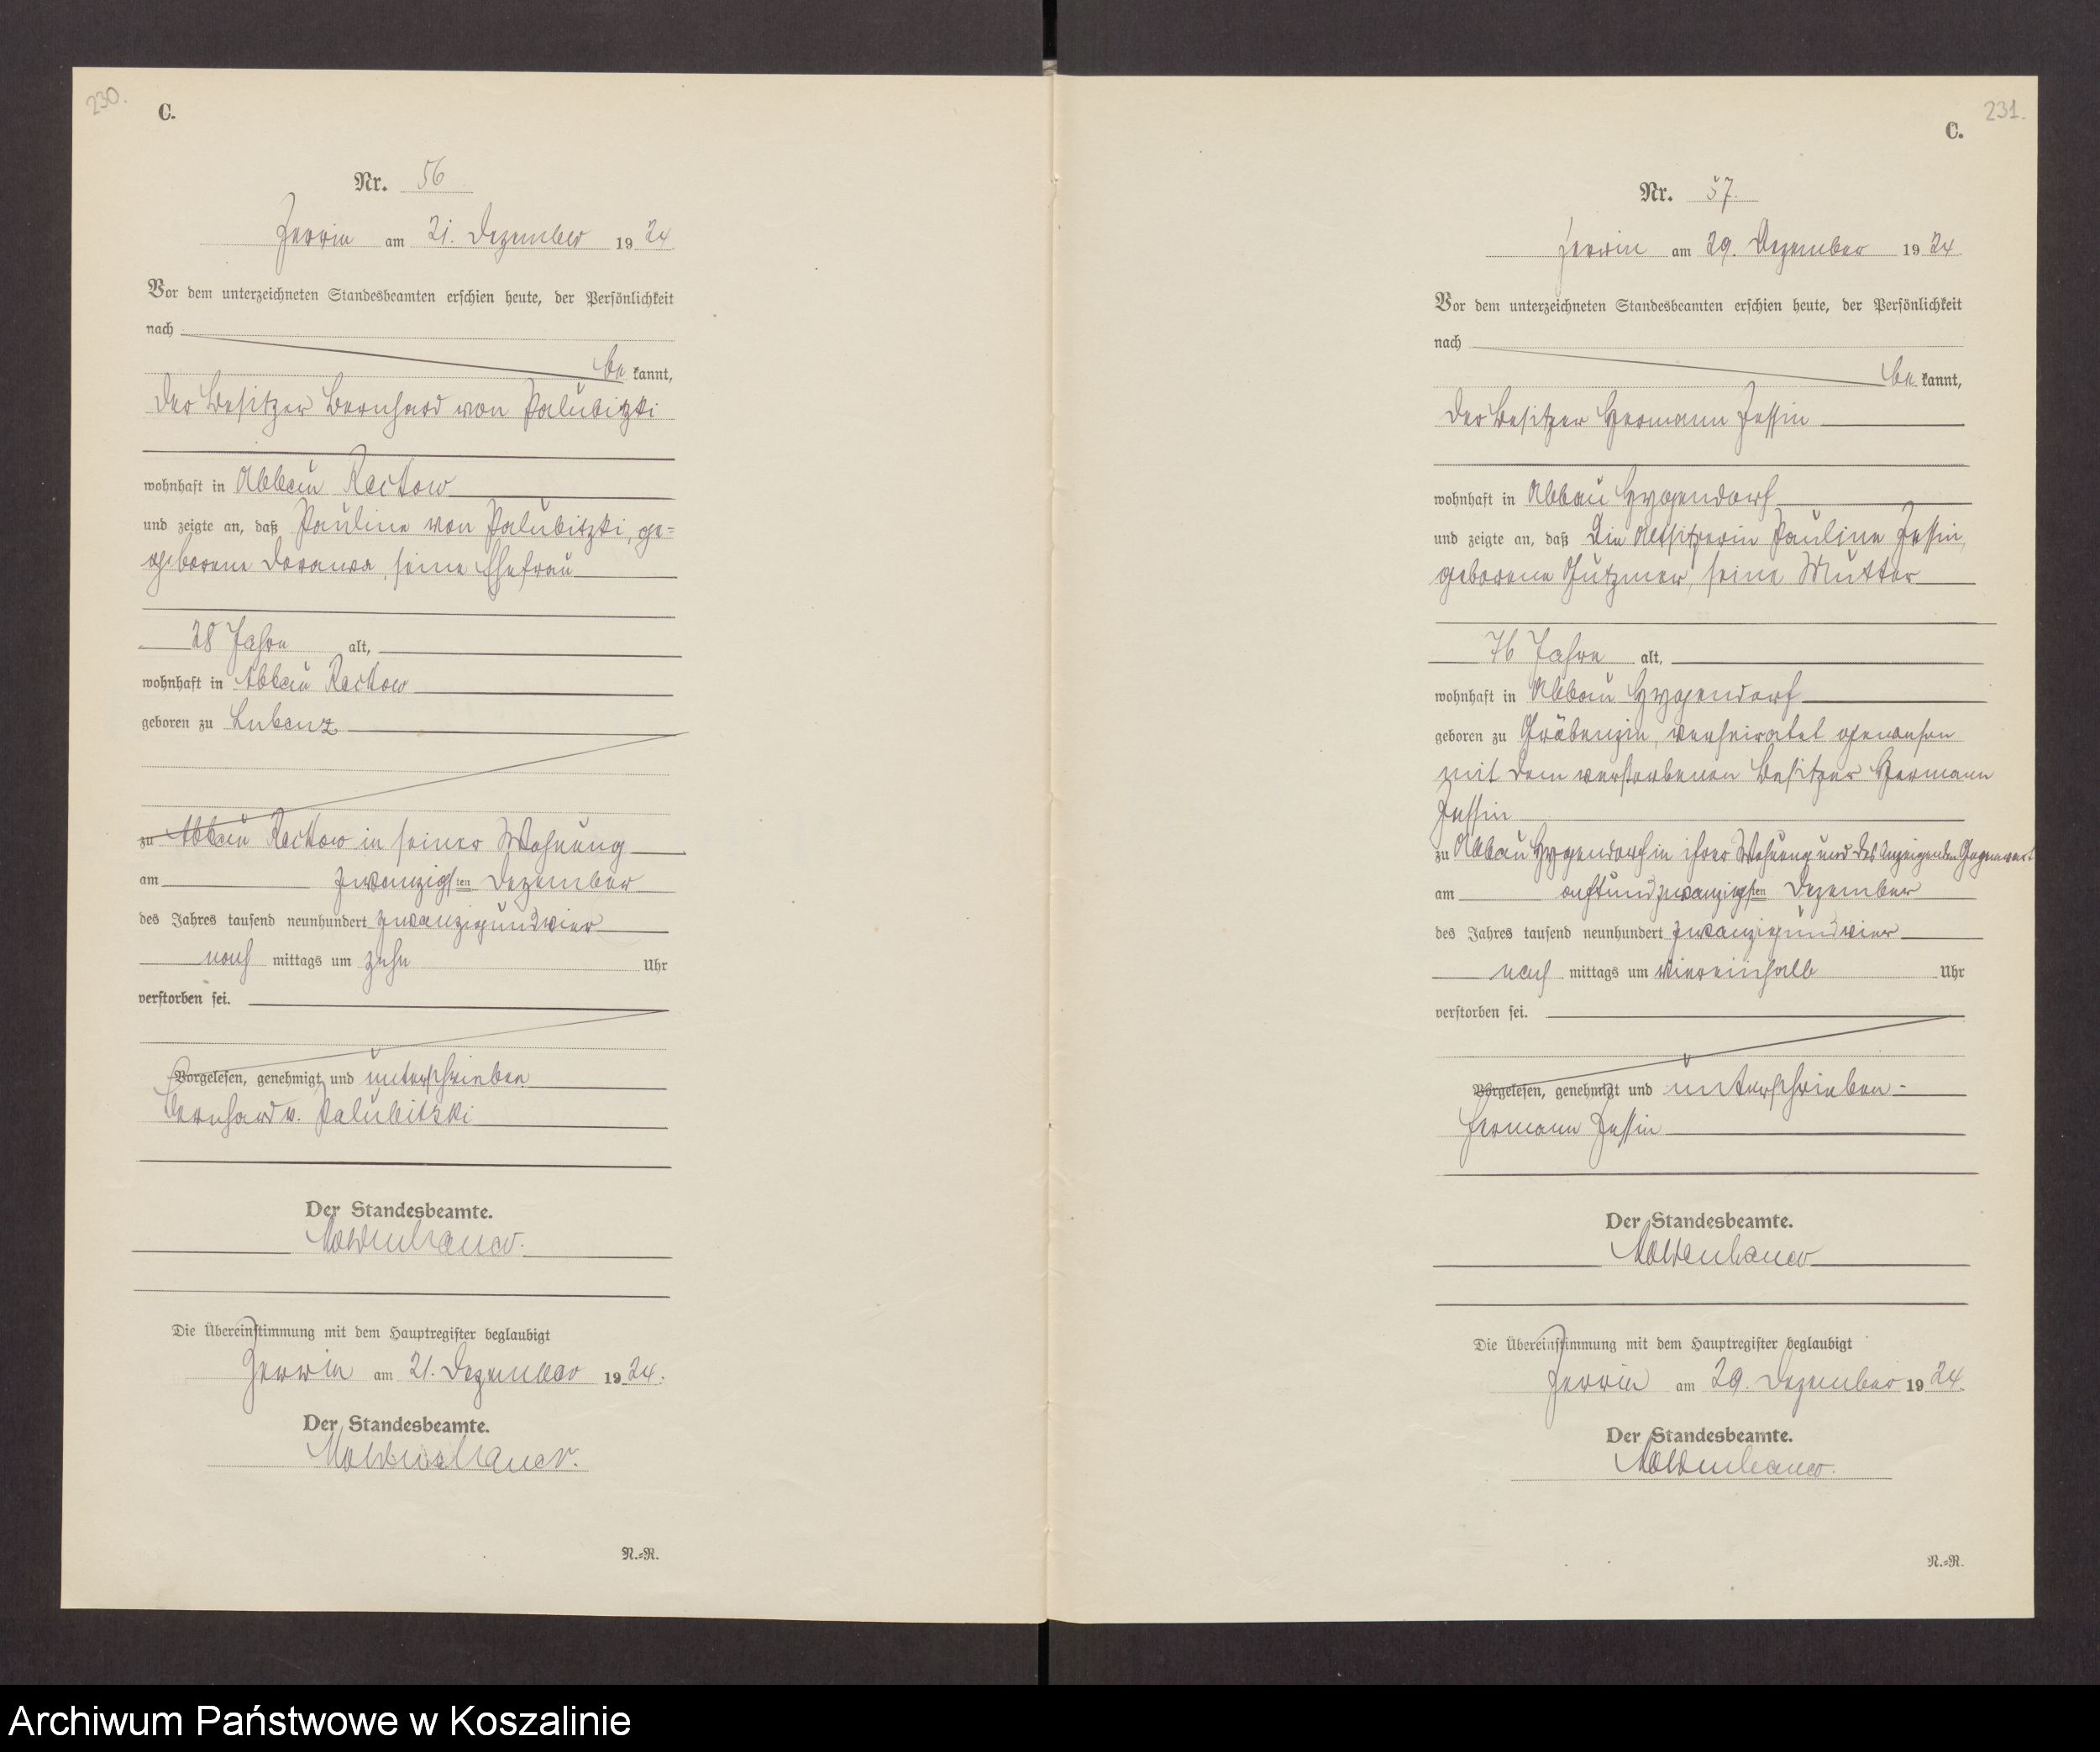 230.
C.
Nr. 56
Jerrin am 21. Dezember 1924
Vor dem unterzeichneten Standesbeamten erschien heute, der Persönlichkeit
nach
be kannt,
der Besitzer Bernhard von Palubitzki
wohnhaft in Abbau Reckow
und zeigte an, daß Pauline von Palubitzki, ge=
geborene Derawa, seine Ehefrau
28 Jahre alt,
wohnhaft in Abbau Reckow
geboren zu Lubenz
zu Abbau Reckow in seiner Wohnung
am zwanzigsten Dezember
des Jahres tausend neunhundert zwanzigundvier
nach mittags um zehn Uhr
verstorben sei.
Vorgelesen, genehmigt und unterschrieben
Bernhard v. Palubitzki
Der Standesbeamte.
Moldenhauer.
Die Übereinstimmung mit dem Hauptregister beglaubigt
Jerrin am 21. Dezember 1924.
Der Standesbeamte.
Moldenhauer.
N.=R.
231.
C.
Nr. 57.
Jerrin am 29. Dezember 1924
Vor dem unterzeichneten Standesbeamten erschien heute, der Persönlichkeit
nach
be kannt,
der Besitzer Hermann Jessin
wohnhaft in Abbau Hygendorf
und zeigte an, daß die Altsitzerin Pauline Jessin,
geborene Gutzmer, seine Mutter
76 Jahre alt,
wohnhaft in Abbau Hygendorf
geboren zu Gräbenzin, verheiratet gewesen
mit dem verstorbenen Besitzer Hermann
Jessin
zu Abbau Hygendorf in ihrer Wohnung und des Anzeigenden Gegenwart
am achtundzwanzigsten Dezember
des Jahres tausend neunhundert zwanzigundvier
nach mittags um viereinhalb Uhr
verstorben sei.
Vorgelesen, genehmigt und unterschrieben
Hermann Jessin
Der Standesbeamte.
Moldenhauer
Die Übereinstimmung mit dem Hauptregister beglaubigt
Jerrin am 29. Dezember 1924.
Der Standesbeamte.
Moldenhauer.
N.=R.
Archiwum Państwowe w Koszalinie